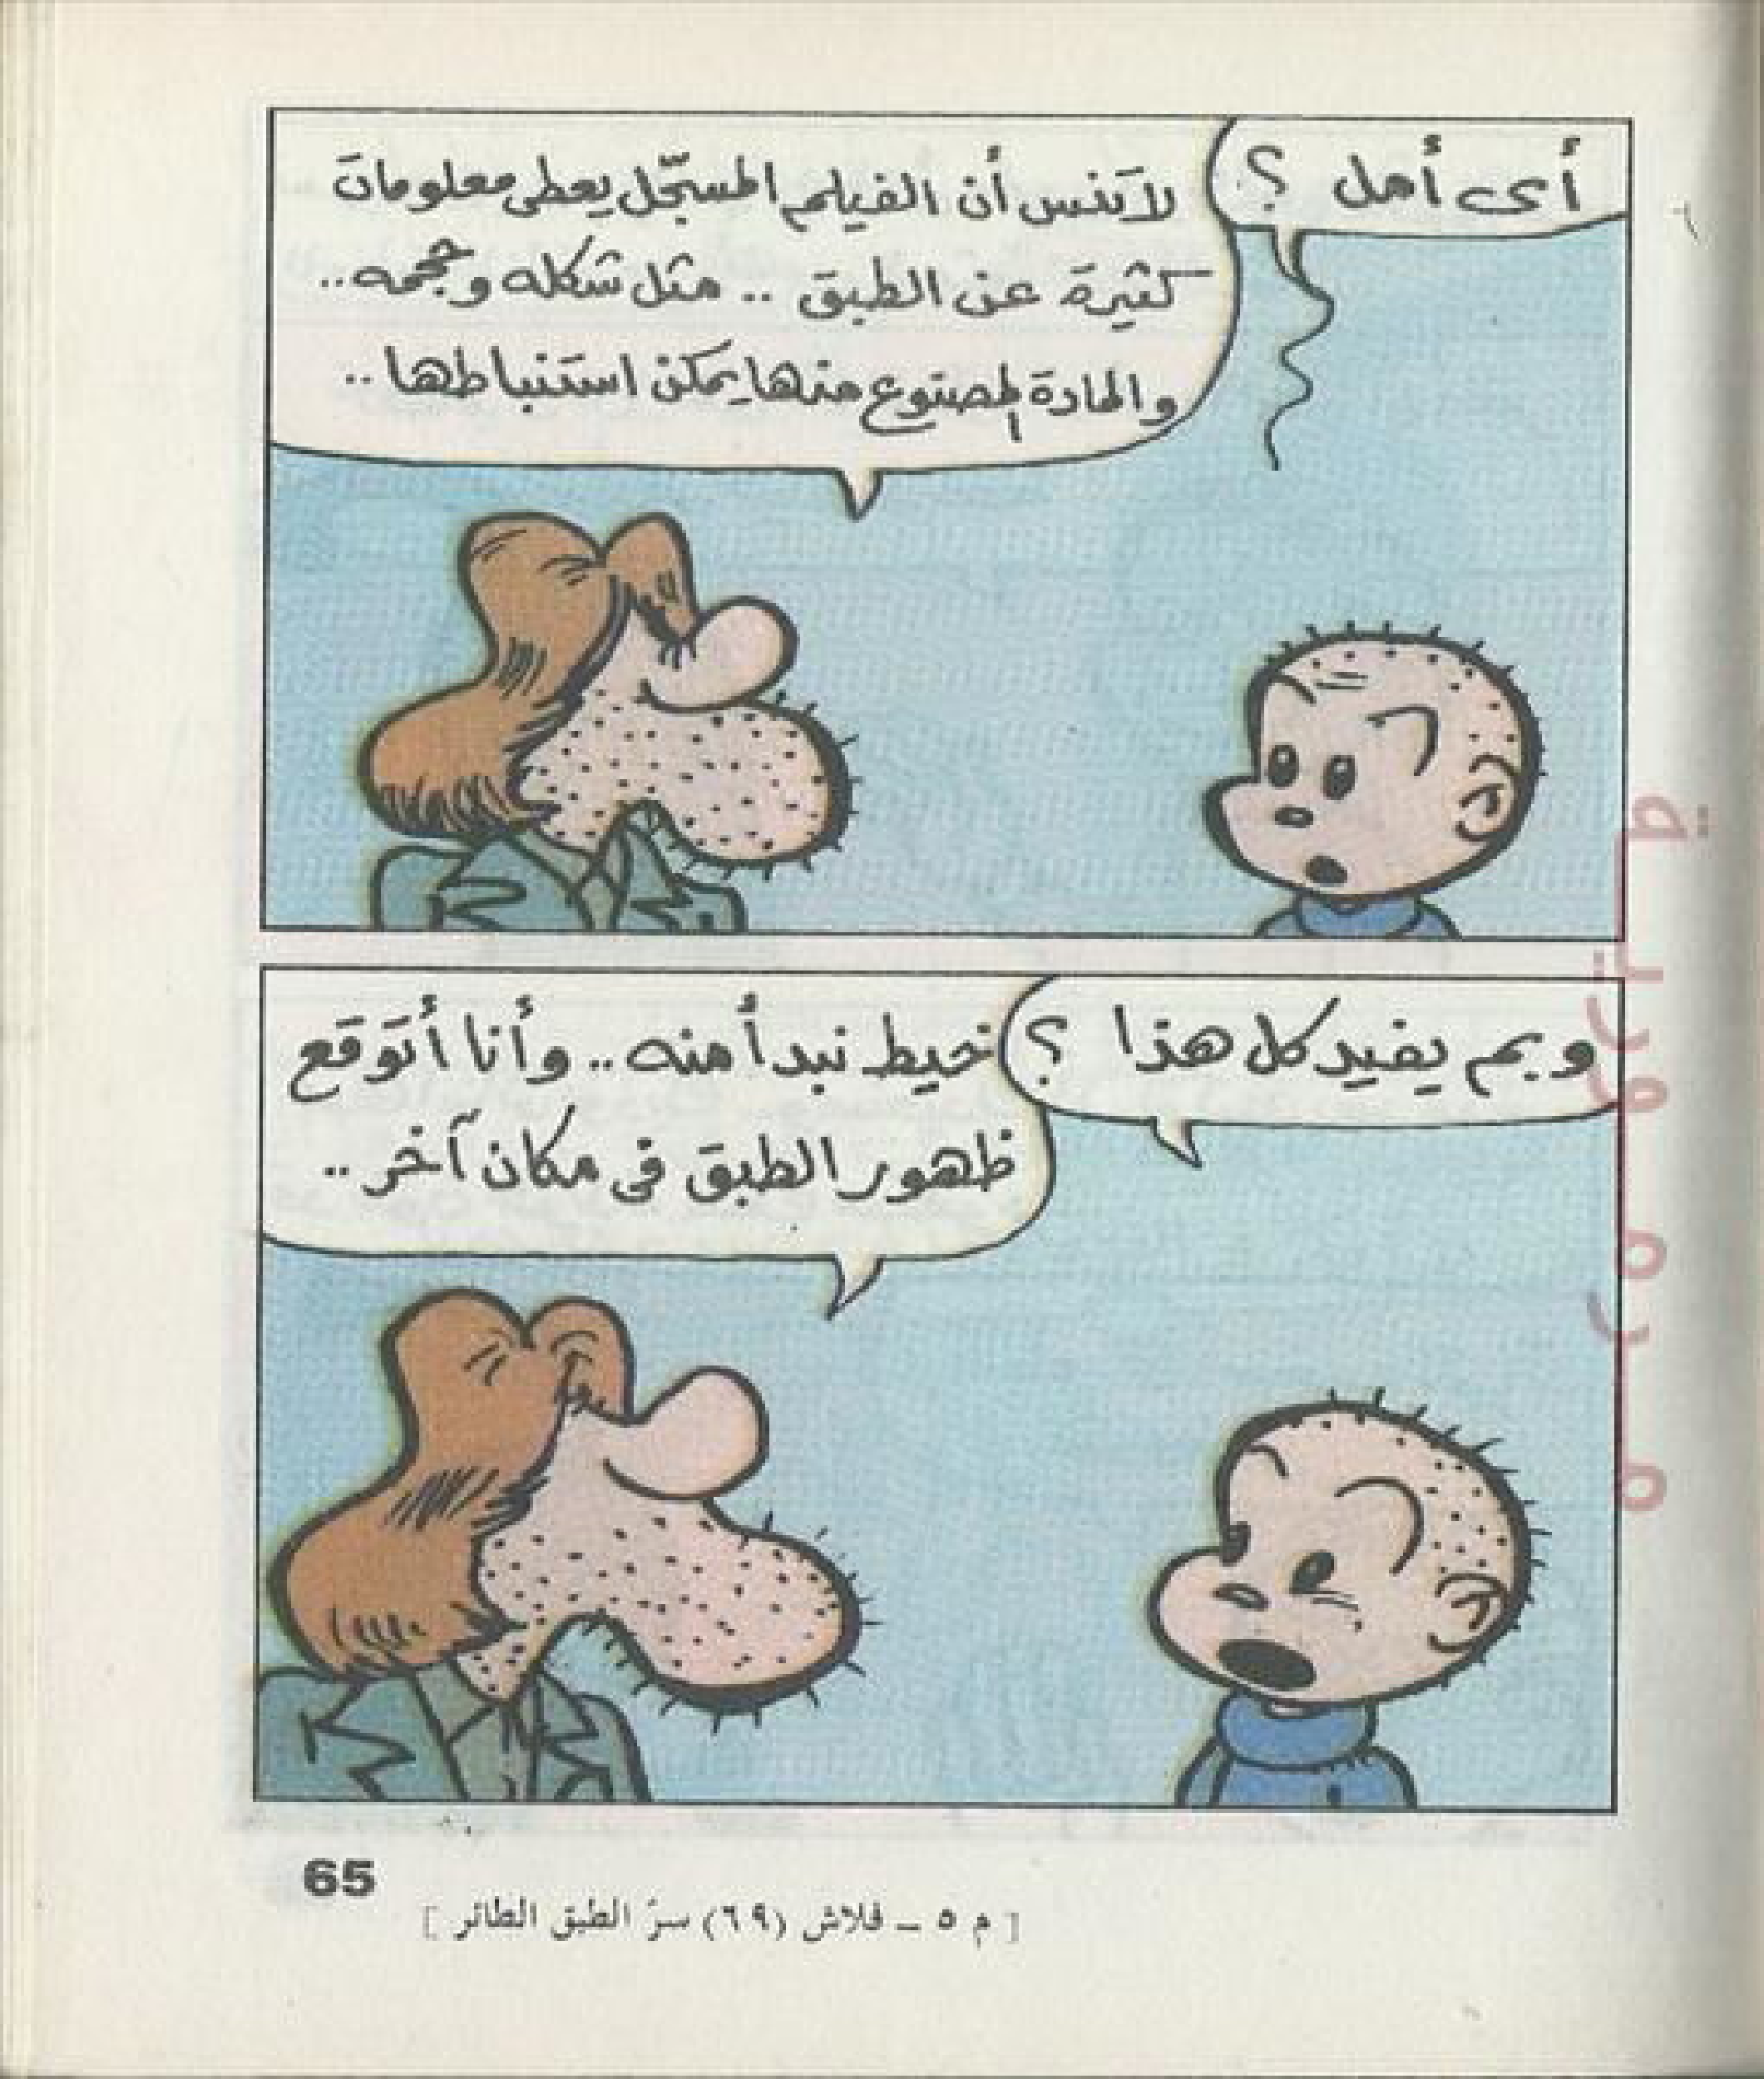 أى أمل ؟
لا تنس أن الفيلم المسجّل يعطى معلومات
كثيرة عن الطبق .. مثل شكله وحجمه ..
والمادة المصنوع منها يمكن استنباطها ..
وبم يفيد كل هذا ؟
خيط نبدأ منه .. وأنا أتوقع
ظهور الطبق فى مكان آخر ..
65
[ م ٥ ــ فلاش (٦٩) سرّ الطبق الطائر ]